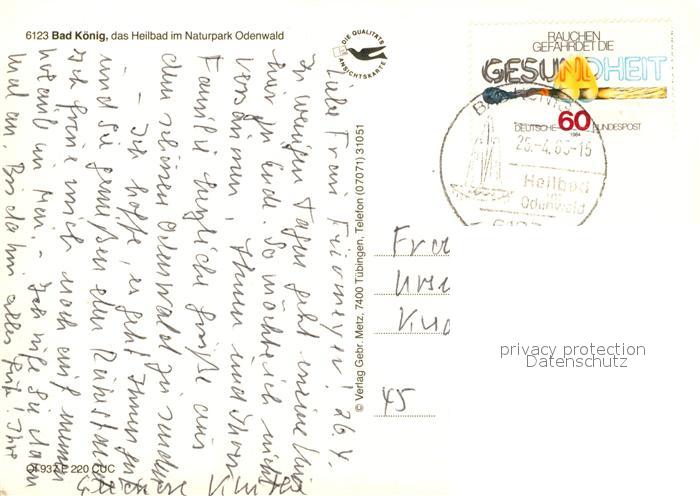 6123 Bad König, das Heilbad im Naturpark Odenwald
DIE QUALITÄTS
ANSICHTSKARTE
RAUCHEN
GEFÄHRDET DIE
GESUNDHEIT
60
DEUTSCHE BUNDESPOST
1984
Bad König
26.-4.85-15
Heilbad
im
Odenwald
6123
Liebe Frau 26.4.
In wenigen Tagen geht meine Kur
hier zu Ende. So möchte ich nicht
versäumen, Ihnen und Ihrer
Familie herzliche Grüße aus
dem schönen Odenwald zu senden
- Ich hoffe, es geht Ihnen gut
und Sie genießen den Ruhestand
Ich freue mich noch auf meinen
Urlaub im Mai. - Ich rufe Sie dann
mal an. Bis dahin alles Gute! Ihre
© Verlag Gebr. Metz, 7400 Tübingen, Telefon (07071) 31051
Frau
45
privacy protection
Datenschutz
220 CUC